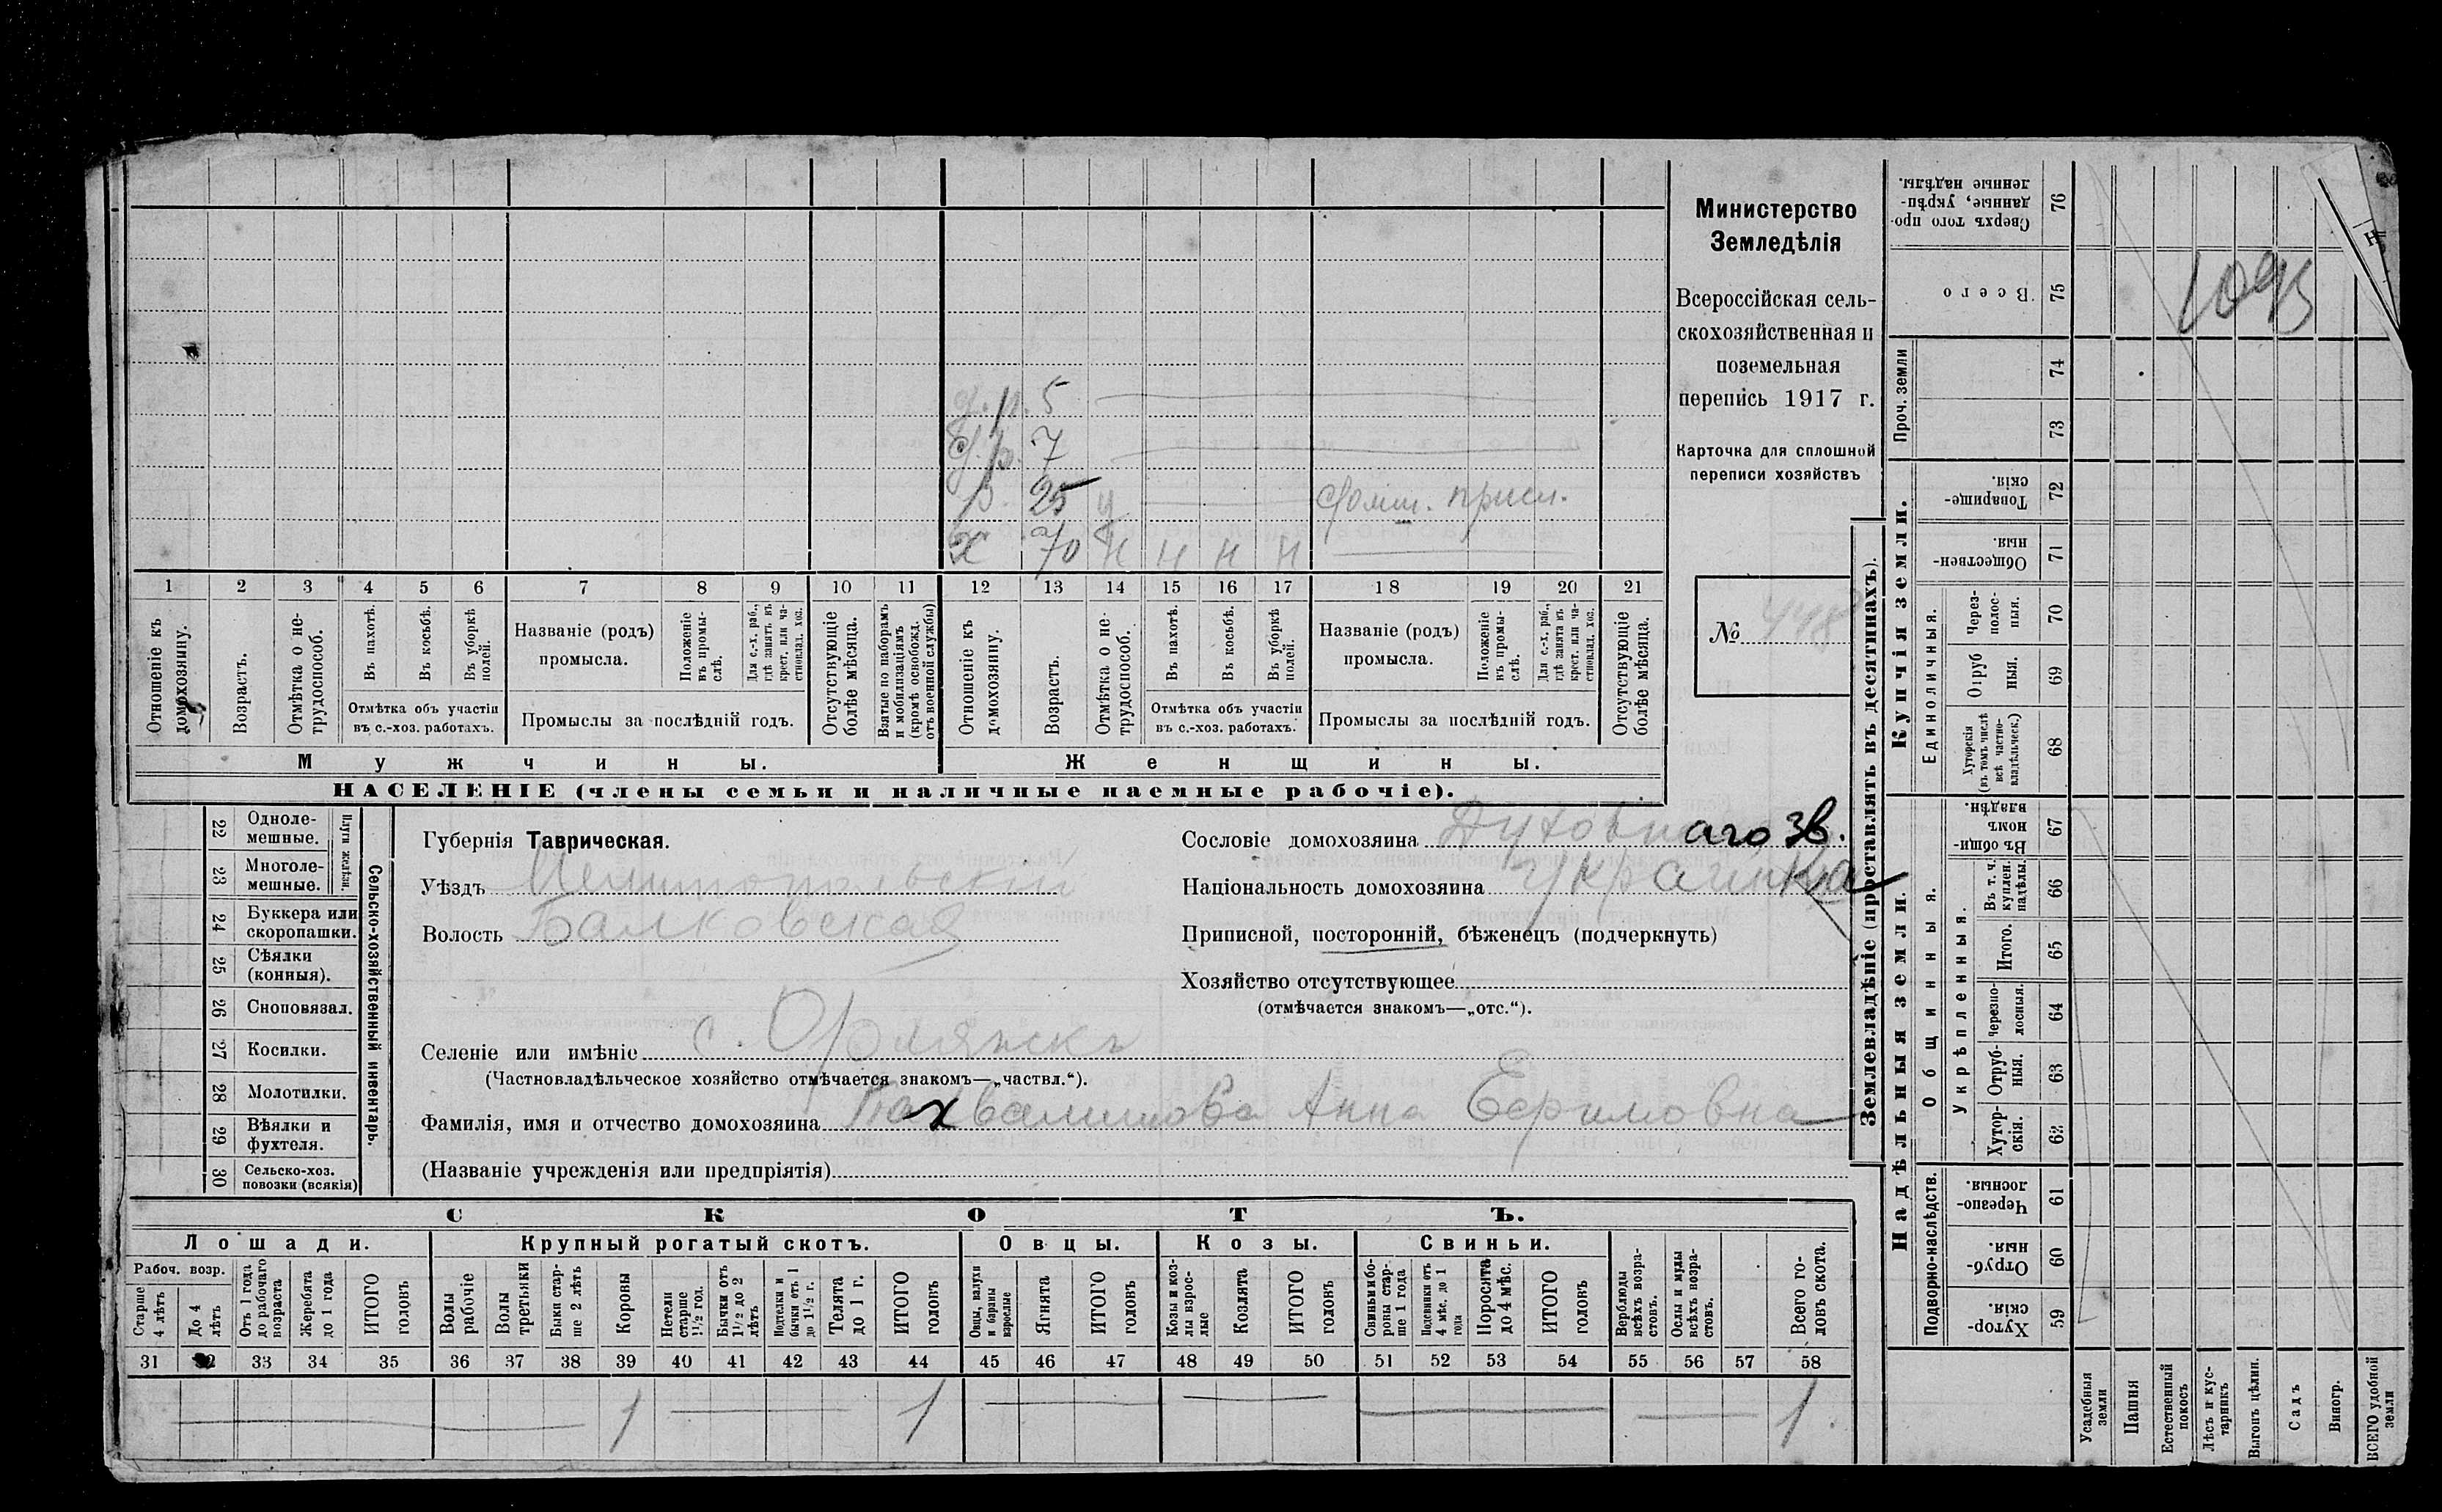 Министерство
Земледѣлія
Всероссійская сель-
скохозяйственная и
поземельная
перепись 1917 г.
Карточка для сплошной
переписи хозяйствъ
№ 448
1093
д. р. 5
д. р. 7
р. 25 у домш. присл.
х 70 н н н н
1 2 3 4 5 6 7 8 9 10 11 12 13 14 15 16 17 18 19 20 21
Отношеніе къ домохозяину.
Возрастъ.
Отмѣтка о не-трудоспособ.
Въ пахотѣ.
Въ косьбѣ.
Въ уборкѣ полей.
Отмѣтка объ участіи
въ с.-хоз. работахъ.
Названіе (родъ)
промысла.
Положеніе въ промы-слѣ.
Для с.-х. раб., гдѣ занятъ въ крест. или ча-стновлад. хоз.
Промыслы за послѣдній годъ.
Отсутствующіе болѣе мѣсяца.
Взятые по наборамъ и мобилизаціямъ (кромѣ освобожд. отъ военной службы)
Отношеніе къ домохозяину.
Возрастъ.
Отмѣтка о не-трудоспособ.
Въ пахотѣ.
Въ косьбѣ.
Въ уборкѣ полей.
Отмѣтка объ участіи
въ с.-хоз. работахъ.
Названіе (родъ)
промысла.
Положеніе въ промы-слѣ.
Для с.-х. раб., гдѣ занята въ крест. или ча-стновлад. хоз.
Промыслы за послѣдній годъ.
Отсутствующіе болѣе мѣсяца.
Мужчины.
Женщины.
НАСЕЛЕНІЕ (члены семьи и наличные наемные рабочіе).
Сельско-хозяйственный инвентарь.
Плуги желѣзн.
22 Одноле-мешные.
23 Многоле-мешные.
24 Буккера или скоропашки.
25 Сѣялки (конныя).
26 Сноповязал.
27 Косилки.
28 Молотилки.
29 Вѣялки и фухтеля.
30 Сельско-хоз. повозки (всякія)
Губернія Таврическая.
Уѣздъ Мелитопольскій
Волость Балковская
Селеніе или имѣніе с. Орлянскъ
(Частновладѣльческое хозяйство отмѣчается знакомъ—„частвл.“).
Фамилія, имя и отчество домохозяина Анна Ефимовна
(Названіе учрежденія или предпріятія)
Сословіе домохозяина Духовнаго зв.
Національность домохозяина украинка
Приписной, посторонній, бѣженецъ (подчеркнуть)
Хозяйство отсутствующее
(отмѣчается знакомъ—„отс.“).
СКОТЪ.
Лошади. Крупный рогатый скотъ. Овцы. Козы. Свиньи.
Рабоч. возр.
Старше 4 лѣтъ
До 4 лѣтъ
Отъ 1 года до рабочаго возраста
Жеребята до 1 года
ИТОГО головъ
Волы рабочіе
Волы третьяки
Быки стар-ше 2 лѣтъ
Коровы
Нетели старше 1½ год.
Бычки отъ 1½ до 2 лѣтъ
Подтелки и бычки отъ 1 до 1½ г.
Телята до 1 г.
ИТОГО головъ
Овцы, валухи и бараны взрослые
Ягнята
ИТОГО головъ
Козы и коз-лы взрос-лые
Козлята
ИТОГО головъ
Свиньи и бо-ровы стар-ше 1 года
Подсвинки отъ 4 мѣс. до 1 года
Поросята до 4 мѣс.
ИТОГО головъ
Верблюды всѣхъ возра-стовъ.
Ослы и мулы всѣхъ возра-стовъ.
Всего го-ловъ скота.
31 32 33 34 35 36 37 38 39 40 41 42 43 44 45 46 47 48 49 50 51 52 53 54 55 56 57 58
1 1 1
Землевладѣніе (проставлять въ десятинахъ).
Купчія земли.
Надѣльныя земли.
Проч. земли
Единоличныя.
Общинныя.
Укрѣпленныя.
Подворно-наслѣдств.
Сверхъ того про-данные, укрѣп-ленные надѣлы. 76
Всего 75
74
73
Товарище-скія. 72
Обществен-ныя. 71
Через-полос-ныя. 70
Отруб-ныя. 69
Хуторскія (въ томъ числѣ всѣ частно-владѣльческ.) 68
Въ общи-номъ владѣн. 67
Въ т. ч. куплен. надѣлы. 66
Итого. 65
Черезпо-лосныя. 64
Отруб-ныя. 63
Хутор-скія. 62
Черезпо-лосныя. 61
Отруб-ныя. 60
Хутор-скія. 59
Усадебныя земли
Пашня
Естественный покосъ
Лѣсъ и кус-тарникъ
Выгонъ цѣлин.
Садъ
Виногр.
ВСЕГО удобной земли